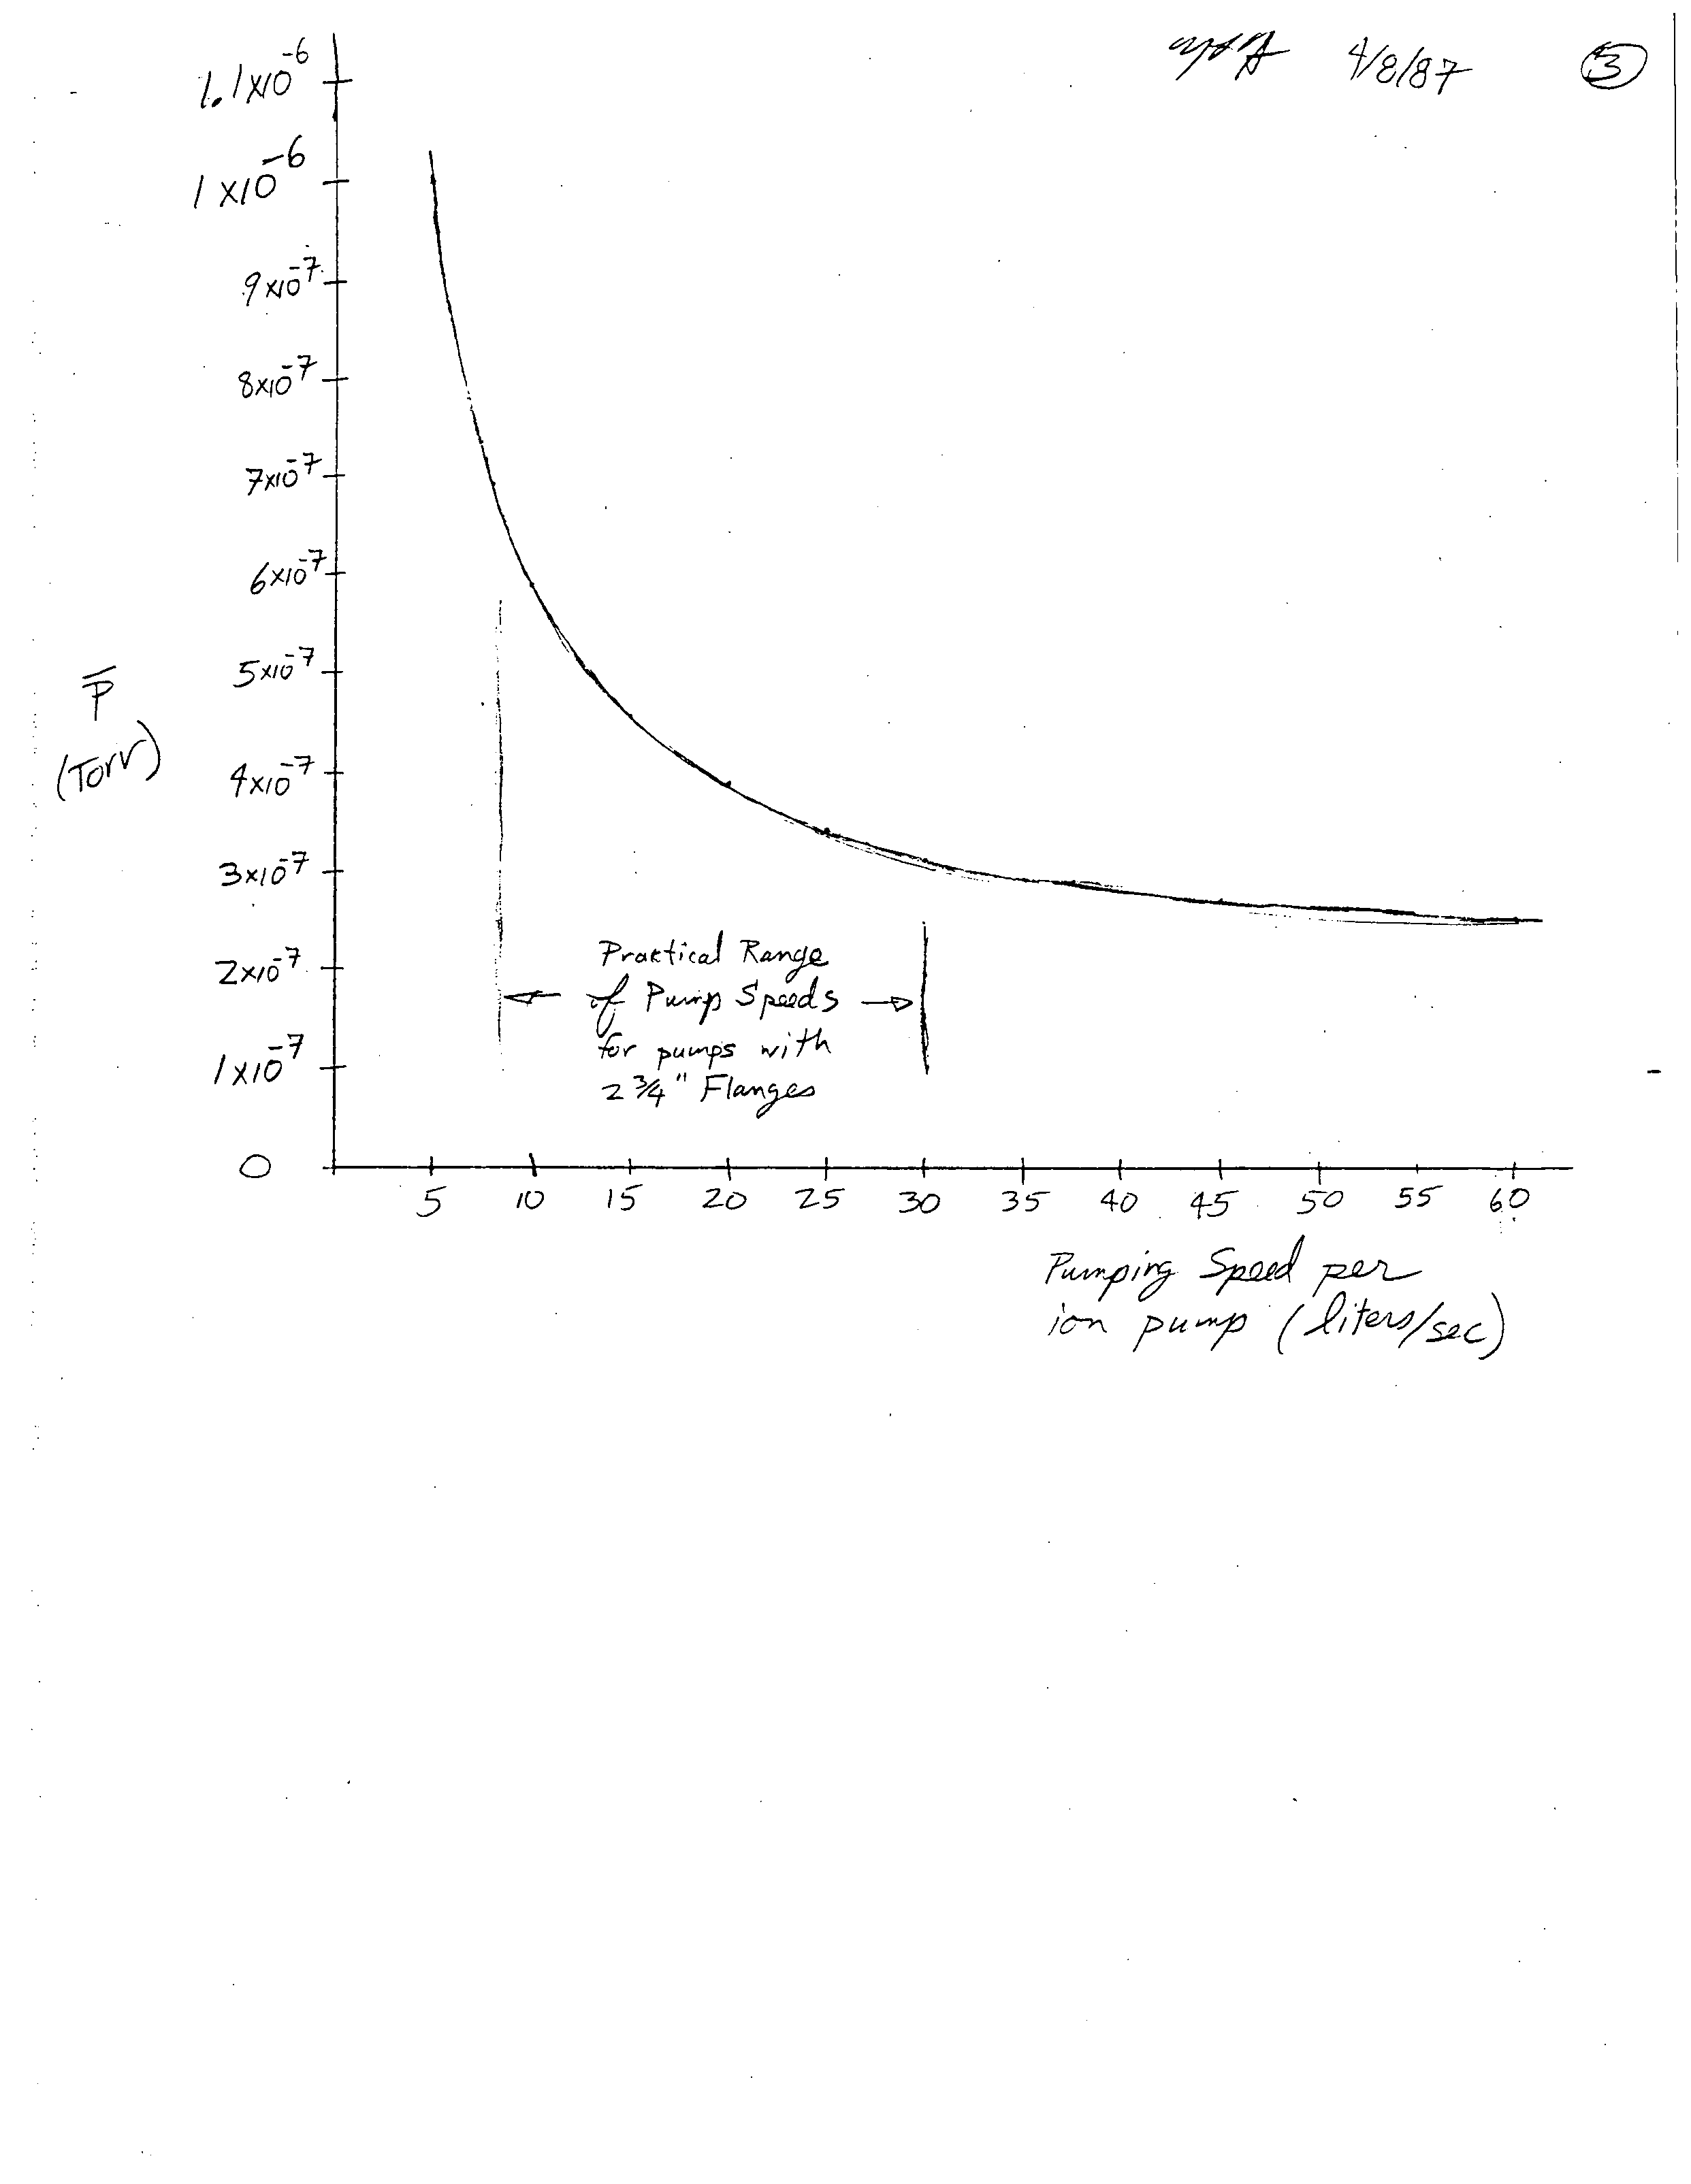 4/8/87 3
1.1x10^-6
1x10^-6
9x10^-7
8x10^-7
7x10^-7
6x10^-7
5x10^-7
4x10^-7
3x10^-7
2x10^-7
1x10^-7
0
P̅
(Torr)
Practical Range
of Pump Speeds
for pumps with
2 3/4" Flanges
5 10 15 20 25 30 35 40 45 50 55 60
Pumping Speed per
ion pump (liters/sec)